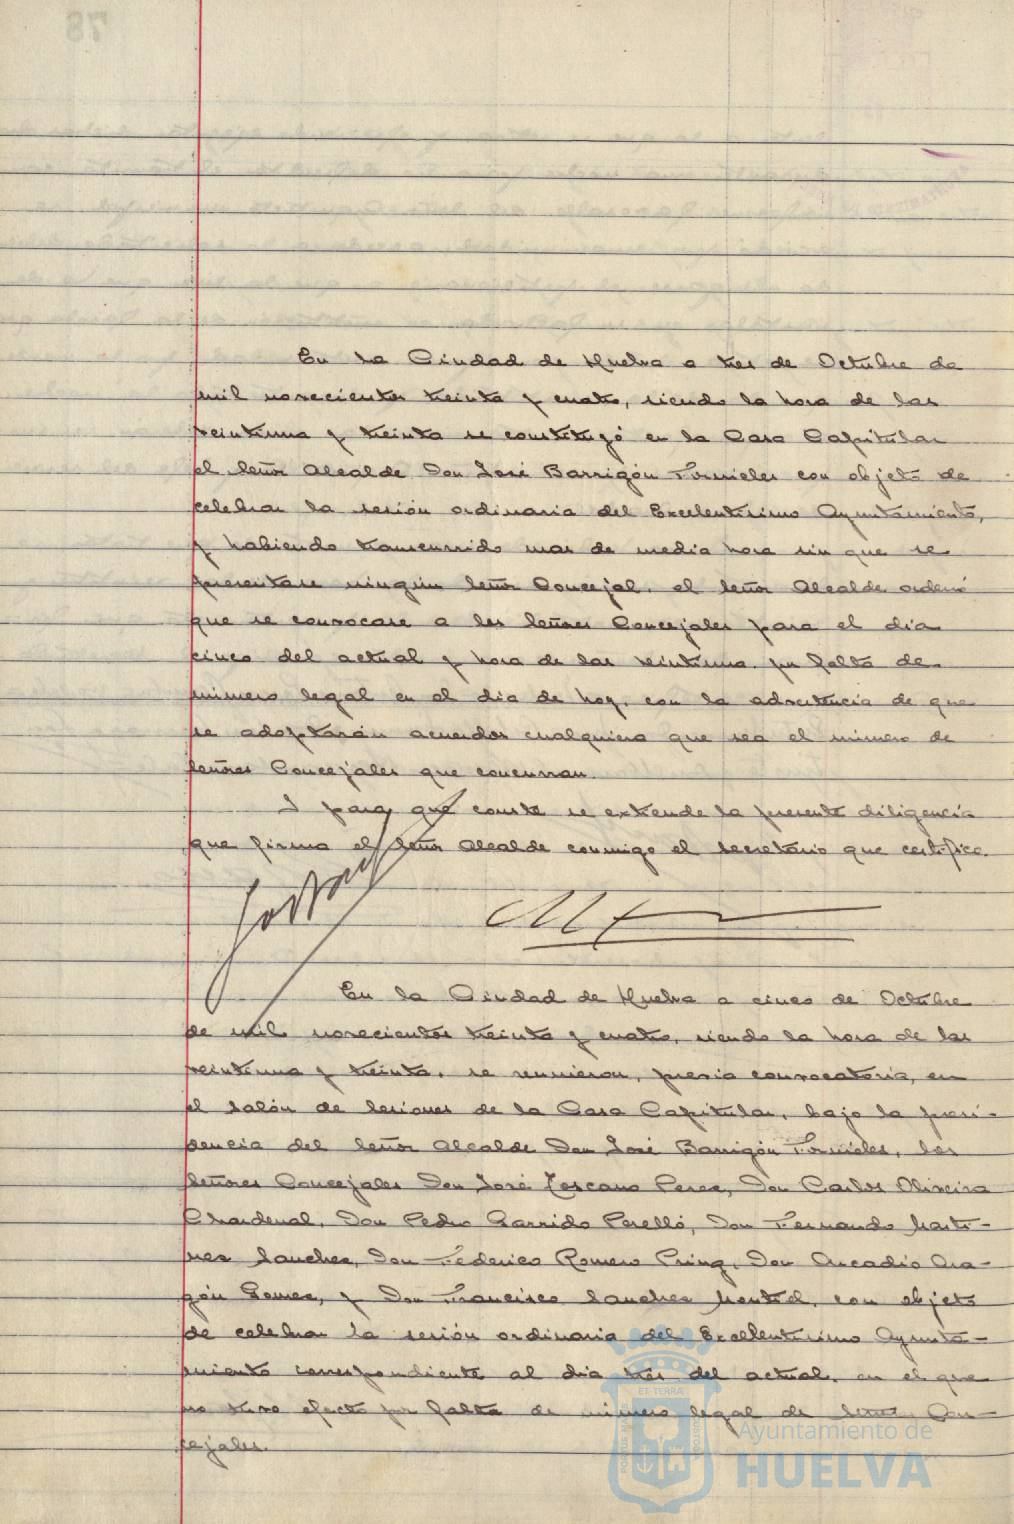 En la Ciudad de Huelva a tres de Octubre de
mil novecientos treinta y cuatro, siendo la hora de las
veintiuna y treinta se constituyó en la Casa Capitular
el Señor Alcalde Don José Barrigón Fornieles con objeto de
celebrar la sesión ordinaria del Excelentísimo Ayuntamiento,
y habiendo transcurrido mas de media hora sin que se
presentase ningún Señor Concejal, el Señor Alcalde ordenó
que se convocase a los Señores Concejales para el dia
cinco del actual y hora de las veintiuna, por falta de
número legal en el dia de hoy, con la advertencia de que
se adoptarán acuerdos cualquiera que sea el número de
Señores Concejales que concurran.
Y para que conste se extiende la presente diligencia
que firma el Señor Alcalde conmigo el secretario que certifico.
En la Ciudad de Huelva a cinco de Octubre
de mil novecientos treinta y cuatro, siendo la hora de las
veintiuna y treinta, se reunieron, previa convocatoria, en
el salón de Sesiones de la Casa Capitular, bajo la presi-
dencia del Señor Alcalde Don José Barrigón Fornieles, los
Señores Concejales Don José Toscano Perez, Don Carlos Oliveira
Chardenal, Don Pedro Garrido Perelló, Don Fernando Marti-
nez Sanchez, Don Federico Romero Pring, Don Arcadio Ara-
gón Gomez, y Don Francisco Sanchez Montiel, con objeto
de celebrar la sesión ordinaria del Excelentísimo Ayunta-
miento correspondiente al dia tres del actual, en el que
no tuvo efecto por falta de número legal de Señores Con-
cejales.
Ayuntamiento de
HUELVA